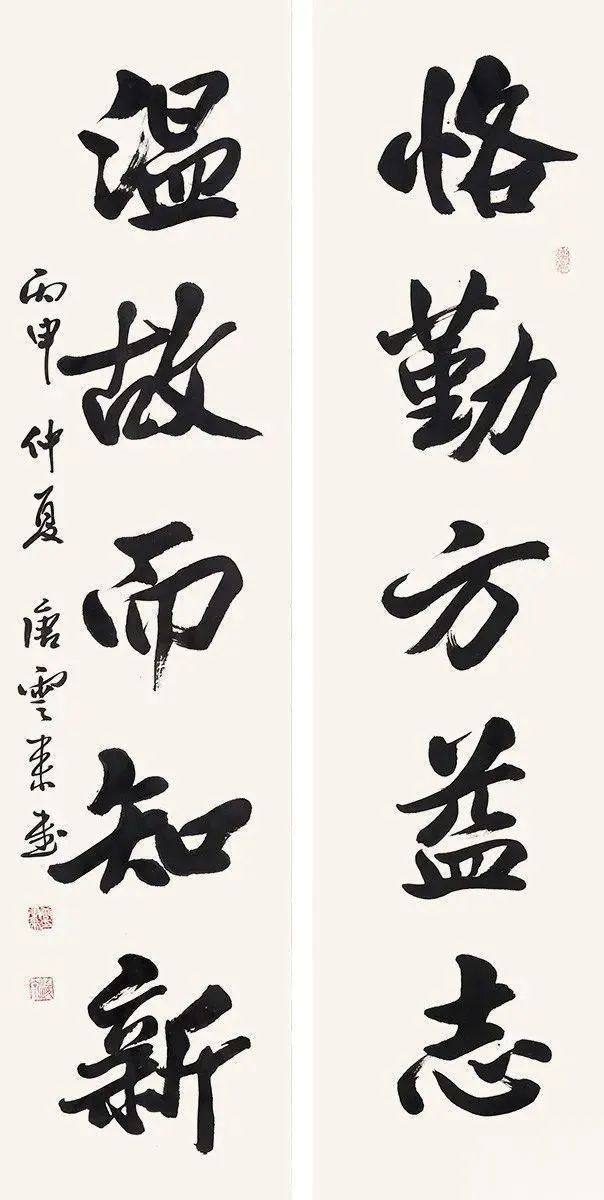 恪勤方益志
温故而知新
丙申仲夏 唐云来书